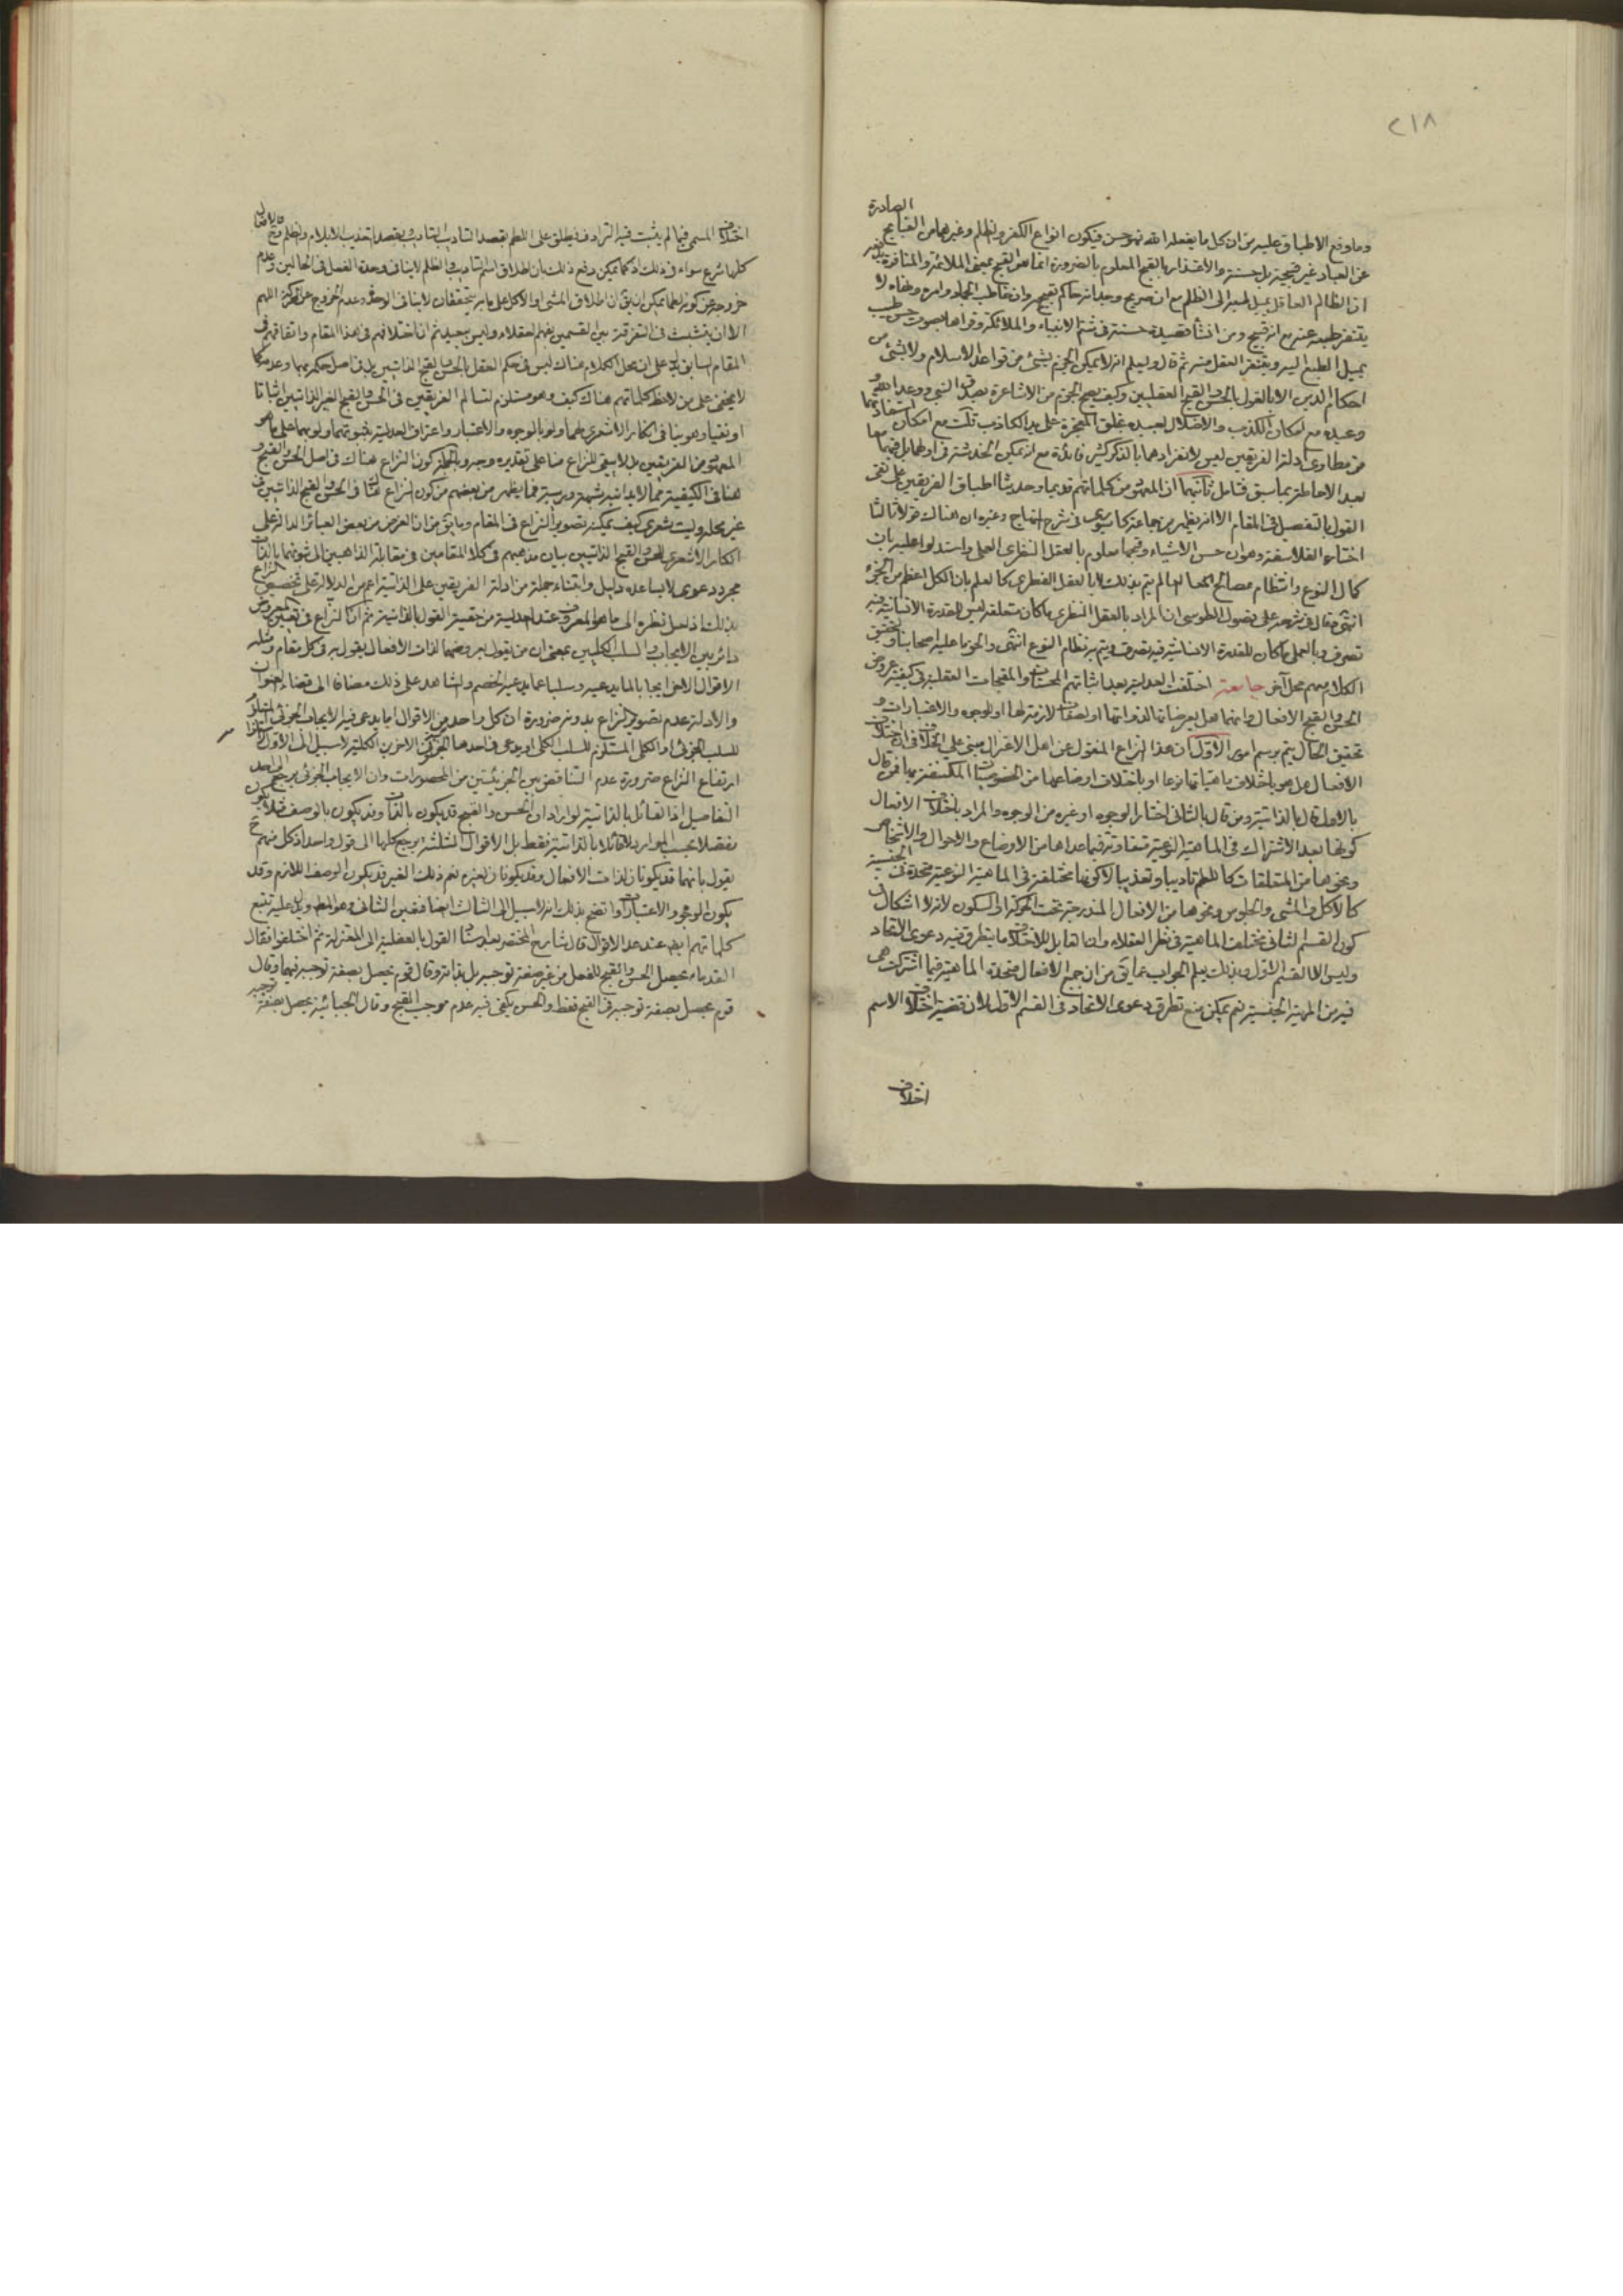 ٢١٨
الصادرة
وما وقع الاطباق عليه من ان كل ما يفعله الله فهو حسن فيكون انواع الكفر والظلم وغيرهما من القبايح
عن العباد غير قبيحة بل حسنة والاعتذار بان القبح المعلوم بالضرورة انما هو القبح بمعنى الملائمة والمنافرة
ان الظالم العاقل يميل طبعه الى الظلم مع ان صريح وجدانه حاكم بقبحه وان خاطب الجماد وامره ونهاه لا
يتنفر طبعه عنه مع انه قبيح ومن انشأ قصيدة حسنة في شتم الانبياء والملائكة وقراها بصوت حسن طيب
يميل الطبع اليه ويتنفر العقل منه ثم قال وليعلم انه لا يمكن الجزم بشئ من قواعد الاسلام ولا بشئ من
احكام الدين الا بالقول بالحسن والقبح العقليين وكيف يصح الجزم من الاشاعرة بصدق النبي ووعد الله و
وعيده مع امكان الكذب والاضلال لعبيده بخلق المعجزة على يد الكاذب قلت مع امكان استفادتهما
من مطاوى ادلة الفريقين ليس لانفرادهما بالذكر كثير فائدة مع انه يمكن الخدشة في
بعد الاحاطة بما سبق فتامل ثانيها ان المعهود من كلماتهم قديما وحديثا اطباق الفريقين على نفى
القول بالتفصيل في المقام الا انه يظهر من جماعة كما سيوى في شرح المنهاج وغيره ان هناك قولا ثالثا
اختاره الفلاسفة وهو ان حسن الاشياء وقبحها معلوم بالعقل النظرى العملى واستدلوا عليه بان
كمال النوع وانتظام مصالح العالم لم يتم بذلك لا بالعقل الفطرى كالعلم بان الكل اعظم من الجزء
انتهى وقال في شرحه على فصول الطوسى ان المراد بالعقل النظرى ما كان متعلقه ليس للقدرة الانسانية فيه
تصرف وبالعملى ما كان للقدرة الانسانية فيه تصرف ويتم به نظام النوع انتهى والحق ما عليه اصحابنا وتحقيق
الكلام معهم محل آخر خاتمة اختلفت العدلية بعد اثباتهم المحسنات والمقبحات العقلية في كيفية عروض
الحسن والقبح للافعال وانهما هل يعرضانها لذواتها او لصفات لازمة لها او للوجوه والاعتبارات و
تحقيق الحال يتم برسم امور الاول ان هذا النزاع المنقول عن اهل الاعتزال مبنى على الخلاف في ان اختلاف
الافعال هل هو باختلاف ماهياتها نوعا او باختلاف اوضاعها من الخصوصيات المكتنفة بها فمن قال
بالاول قال بالذاتية ومن قال بالثانى اختار الوجوه او غيره من الوجوه والمراد باختلاف الافعال
كونها بعد الاشتراك في الماهية النوعية متفاوتة فيما عداها من الاوضاع والاحوال والاشخاص
ونحوها من المتعلقات كاللطم تاديبا وتعذيبا لا كونها مختلفة في الماهية النوعية متحدة في الجنسية
كالاكل والمشى والجلوس ونحوها من الافعال المندرجة تحت الحركة او السكون لانه لا اشكال في
كون القسم الثانى مختلف الماهية في نظر العقلاء وان القابل للاختلاف ما يتطرق فيه دعوى الاتحاد
وليس الا القسم الاول وبذلك يعلم الجواب عما يق من ان جميع الافعال متحدة الماهية فيما اشتركت هى
فيه من المهية الجنسية نعم يمكن منع تطرق دعوى الاتحاد في القسم الاول لان قضية اختلاف الاسم
اختلاف
اختلاف المسمى فيما لم يثبت فيه الترادف فيطلق على اللطم بقصد التاديب التاديب وبقصد التعذيب الايلام والظلم
كلها شرع سواء في ذلك اذ كما يمكن دفع ذلك بان اطلاق اسم التاديب والظلم لا ينافى وحدة الفعل في الحالين وعدم
خروجه عن كونه لطما يمكن ان يق ان اطلاق المشى او الاكل على ما به يتحققان لا ينافى الوحدة وعدم الخروج عن الحركة اللهم
الا ان يتشبث في التفرقة بين القسمين بفهم العقلاء وليس ببعيد ثم ان اختلافهم في هذا المقام واتفاقهم في
المقام السابق يدل على ان محل الكلام هناك ليس في حكم العقل بالحسن والقبح الذاتيين بل في اصل حكمه بهما وعدمه كما
لا يخفى على من لاحظ كلماتهم هناك كيف وهو مستلزم لتسالم الفريقين في الحسن والقبح الغير الذاتيين اثباتا
او نفيا وهو ينافى انكار الاشعرى لهما ولو بالوجوه والاعتبار واعتراف العدلية بثبوتهما ولو بهما على ما هو
المعهود من الفريقين بل لا يبقى للنزاع هنا على تقديره وجه وبالجملة كون النزاع هناك في اصل الحسن والقبح و
هنا في الكيفية مما لا يدانيه شبهة وريبة فما يظهر من بعضهم من كون النزاع هناك في الحسن والقبح الذاتيين في
غير محله وليت شعرى كيف يمكنه تصوير النزاع في المقام وما يق من ان الغرض من بعض العبائر الدالة على
انكار الاشعرى للحسن والقبح الذاتيين بيان مذهبهم في كلا المقامين في مقابلة الذاهبين الى ثبوتهما بالذات
مجرد دعوى لا يساعده دليل وابتناء جملة من ادلة الفريقين على الذاتية اعم من الدلالة على تخصيص النزاع
بذلك اذ لعل نظره الى ما هو المعروف عند العدلية من حقيقة القول بالذاتية ثم ان النزاع في تعيين المعروض
دائر بين الايجاب والسلب الكليين بمعنى ان من يقول بعروضهما لذات الافعال يقول به في كل مقام ومثله
الاقوال الاخر ايجابا لما يدعيه وسلبا عما يدعيه الخصم والشاهد على ذلك مضافا الى قضاء العنوان
والادلة عدم تصوير النزاع بدونه ضرورة ان كل واحد من الاقوال اما يدعى فيه الايجاب الجزئى
للسلب الجزئى او الكلى المستلزم للسلب الكلى او يدعى في احدها الجزئى وفي الاخرين الكلية لا سبيل الى الاول
ارتفاع النزاع ضرورة عدم التناقض بين الجزئيتين من المحصورات وان الايجاب الجزئى يرجع الى احد
التفاصيل اذ القائل بالذاتية لو اراد ان الحسن والقبح قد يكون بالذات وقد يكون بالوصف مثلا يكون
مفصلا بحسب الموارد لا قائلا بالذاتية فقط بل الاقوال الثلثة يرجع كلها الى قول واحد اذ كل منهم ح
يقول بانهما قد يكونان لذات الافعال وقد يكونان لغيره نعم ذلك الغير قد يكون الوصف اللازم وقد
يكون الوجوه والاعتبارات واتضح بذلك انه لا سبيل الى الثالث ايضا فتعين الثانى وهو المطلوب ويدل عليه تتبع
كلماتهم ايضا عند عد الاقوال قال شارح المختصر بعد اسناد القول بالعقلية الى المعتزلة ثم اختلفوا فقال
القدماء يحصل الحسن والقبح للفعل من غير صفة توجبه بل بذاته وقال قوم يحصل بصفة توجبه فيهما وقال
قوم يحصل بصفة توجبه في القبح فقط والحسن يكفى فيه عدم موجب القبح وقال الجبائية يحصل بصفة توجبه